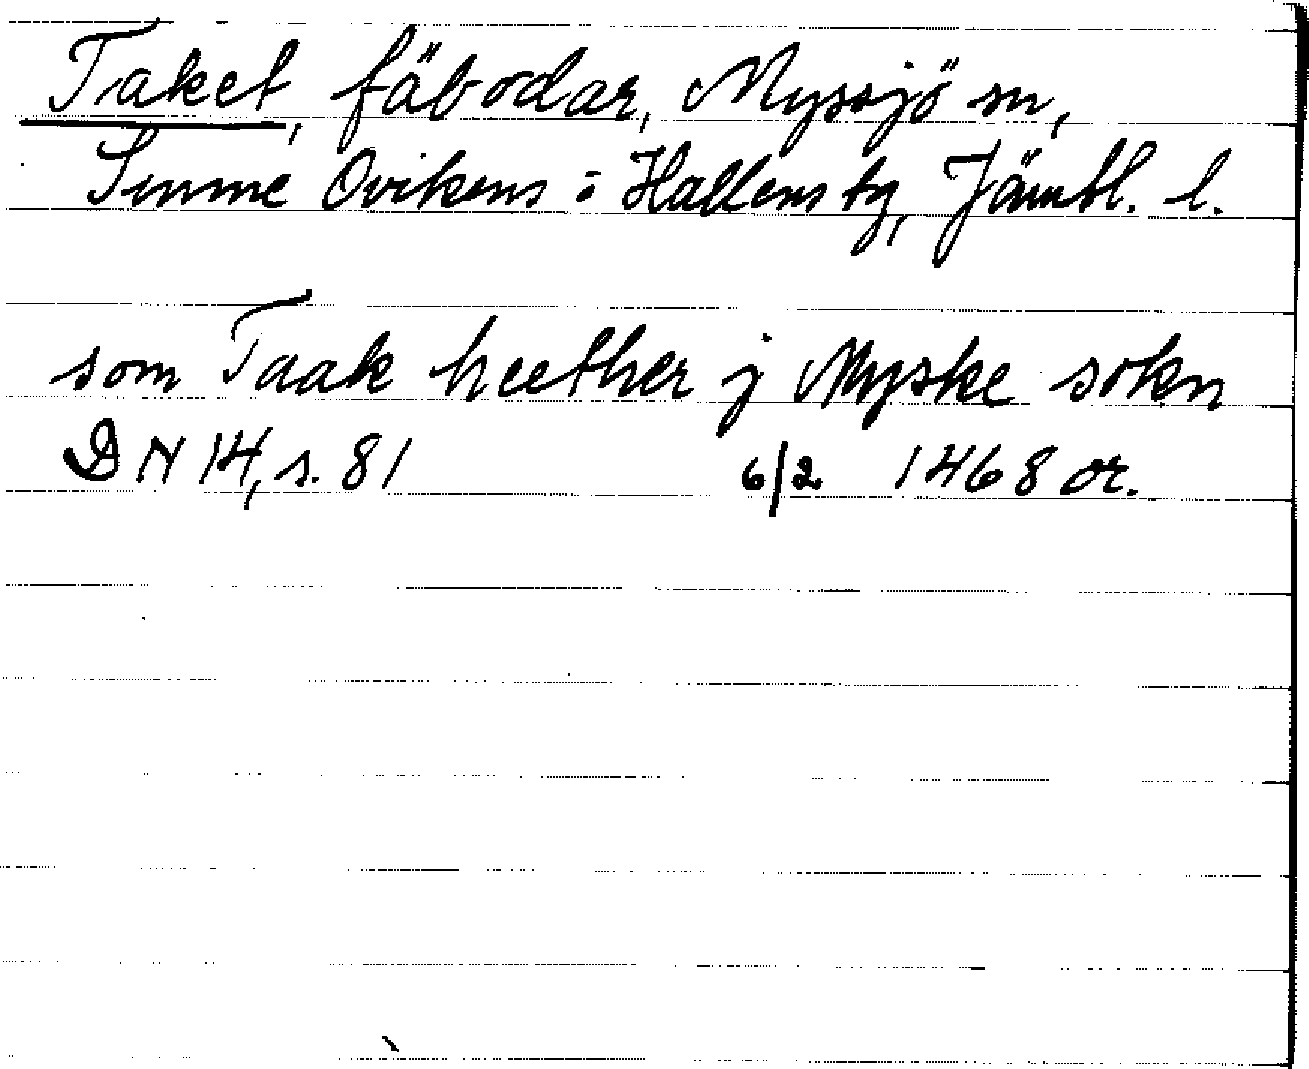 Taket, fäbodar, Myssjö sn,
Sunne, Ovikens o Hallens tg, Jämtl. l.
som Taak heether j Myske sokn
DN 14, s. 81 6/2 1468 or.